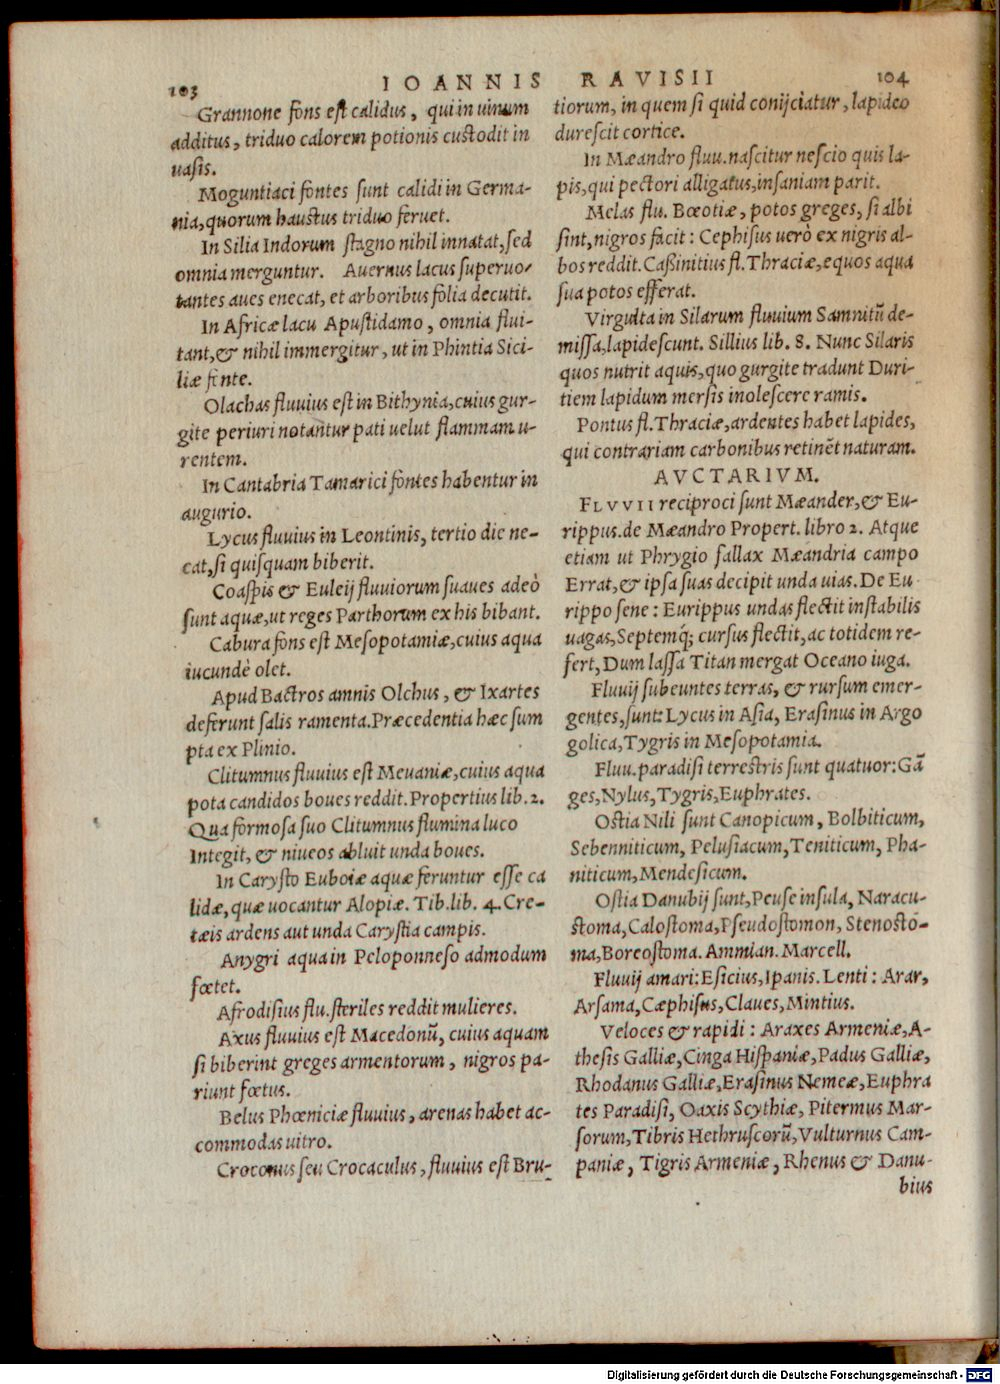 103 IOANNIS RAVISII 104
Grannone fons est calidus, qui in uinum
additus, triduo calorem potionis custodit in
uasis.
Moguntiaci fontes sunt calidi in Germa-
nia, quorum haustus triduo feruet.
In Silia Indorum stagno nihil innatat, sed
omnia merguntur. Auernus lacus superuo-
tantes aues enecat, et arboribus folia decutit.
In Africæ lacu Apustidamo, omnia flui-
tant, & nihil immergitur, ut in Phintia Sici-
liæ fonte.
Olachas fluuius est in Bithynia, cuius gur-
gite periuri notantur pati uelut flammam u-
rentem.
In Cantabria Tamarici fontes habentur in
augurio.
Lycus fluuius in Leontinis, tertio die ne-
cat, si quisquam biberit.
Coaspis & Euleij fluuiorum suaues adeò
sunt aquæ, ut reges Parthorum ex his bibant.
Cabura fons est Mesopotamiæ, cuius aqua
iucundè olet.
Apud Bactros amnis Olchus, & Ixartes
deferunt salis ramenta. Præcedentia hæc sum
pta ex Plinio.
Clitumnus fluuius est Meuaniæ, cuius aqua
pota candidos boues reddit. Propertius lib. 2.
Qua formosa suo Clitumnus flumina luco
Integit, & niueos abluit unda boues.
In Carysto Euboiæ aquæ feruntur esse ca
lidæ, quæ uocantur Alopiæ. Tib. lib. 4. Cre-
tæis ardens aut unda Carystia campis.
Anygri aqua in Peloponneso admodum
fœtet.
Afrodisius flu. steriles reddit mulieres.
Axus fluuius est Macedonũ, cuius aquam
si biberint greges armentorum, nigros pa-
riunt fœtus.
Belus Phœniciæ fluuius, arenas habet ac-
commodas uitro.
Croconus seu Crocaculus, fluuius est Bru-
tiorum, in quem si quid conijciatur, lapideo
durescit cortice.
In Mæandro fluu. nascitur nescio quis la-
pis, qui pectori alligatus, insaniam parit.
Melas flu. Bœotiæ, potos greges, si albi
sint, nigros facit: Cephisus uerò ex nigris al-
bos reddit. Caßinitius fl. Thraciæ, equos aqua
sua potos efferat.
Virgulta in Silarum fluuium Samnitũ de-
missa, lapidescunt. Sillius lib. 8. Nunc Silaris
quos nutrit aquis, quo gurgite tradunt Duri-
tiem lapidum mersis inolescere ramis.
Pontus fl. Thraciæ, ardentes habet lapides,
qui contrariam carbonibus retinẽt naturam.
AVCTARIVM.
FLVVII reciproci sunt Mæander, & Eu-
rippus. de Mæandro Propert. libro 2. Atque
etiam ut Phrygio fallax Mæandria campo
Errat, & ipsa suas decipit unda uias. De Eu
rippo sene: Eurippus undas flectit instabilis
uagas, Septemq́; cursus flectit, ac totidem re-
fert, Dum lassa Titan mergat Oceano iuga.
Fluuij subeuntes terras, & rursum emer-
gentes, sunt: Lycus in Asia, Erasinus in Argo
golica, Tygris in Mesopotamia.
Fluu. paradisi terrestris sunt quatuor: Gã
ges, Nylus, Tygris, Euphrates.
Ostia Nili sunt Canopicum, Bolbiticum,
Sebenniticum, Pelusiacum, Teniticum, Pha-
niticum, Mendesicum.
Ostia Danubij sunt, Peuse insula, Naracu-
stoma, Calostoma, Pseudostomon, Stenosto-
ma, Boreostoma. Ammian. Marcell.
Fluuij amari: Esicius, Ipanis. Lenti: Arar,
Arsama, Cæphisus, Claues, Mintius.
Veloces & rapidi: Araxes Armeniæ, A-
thesis Galliæ, Cinga Hispaniæ, Padus Galliæ,
Rhodanus Galliæ, Erasinus Nemeæ, Euphra
tes Paradisi, Oaxis Scythiæ, Pitermus Mar-
sorum, Tibris Hethruscorũ, Vulturnus Cam-
paniæ, Tigris Armeniæ, Rhenus & Danu-
bius
Digitalisierung gefördert durch die Deutsche Forschungsgemeinschaft - DFG